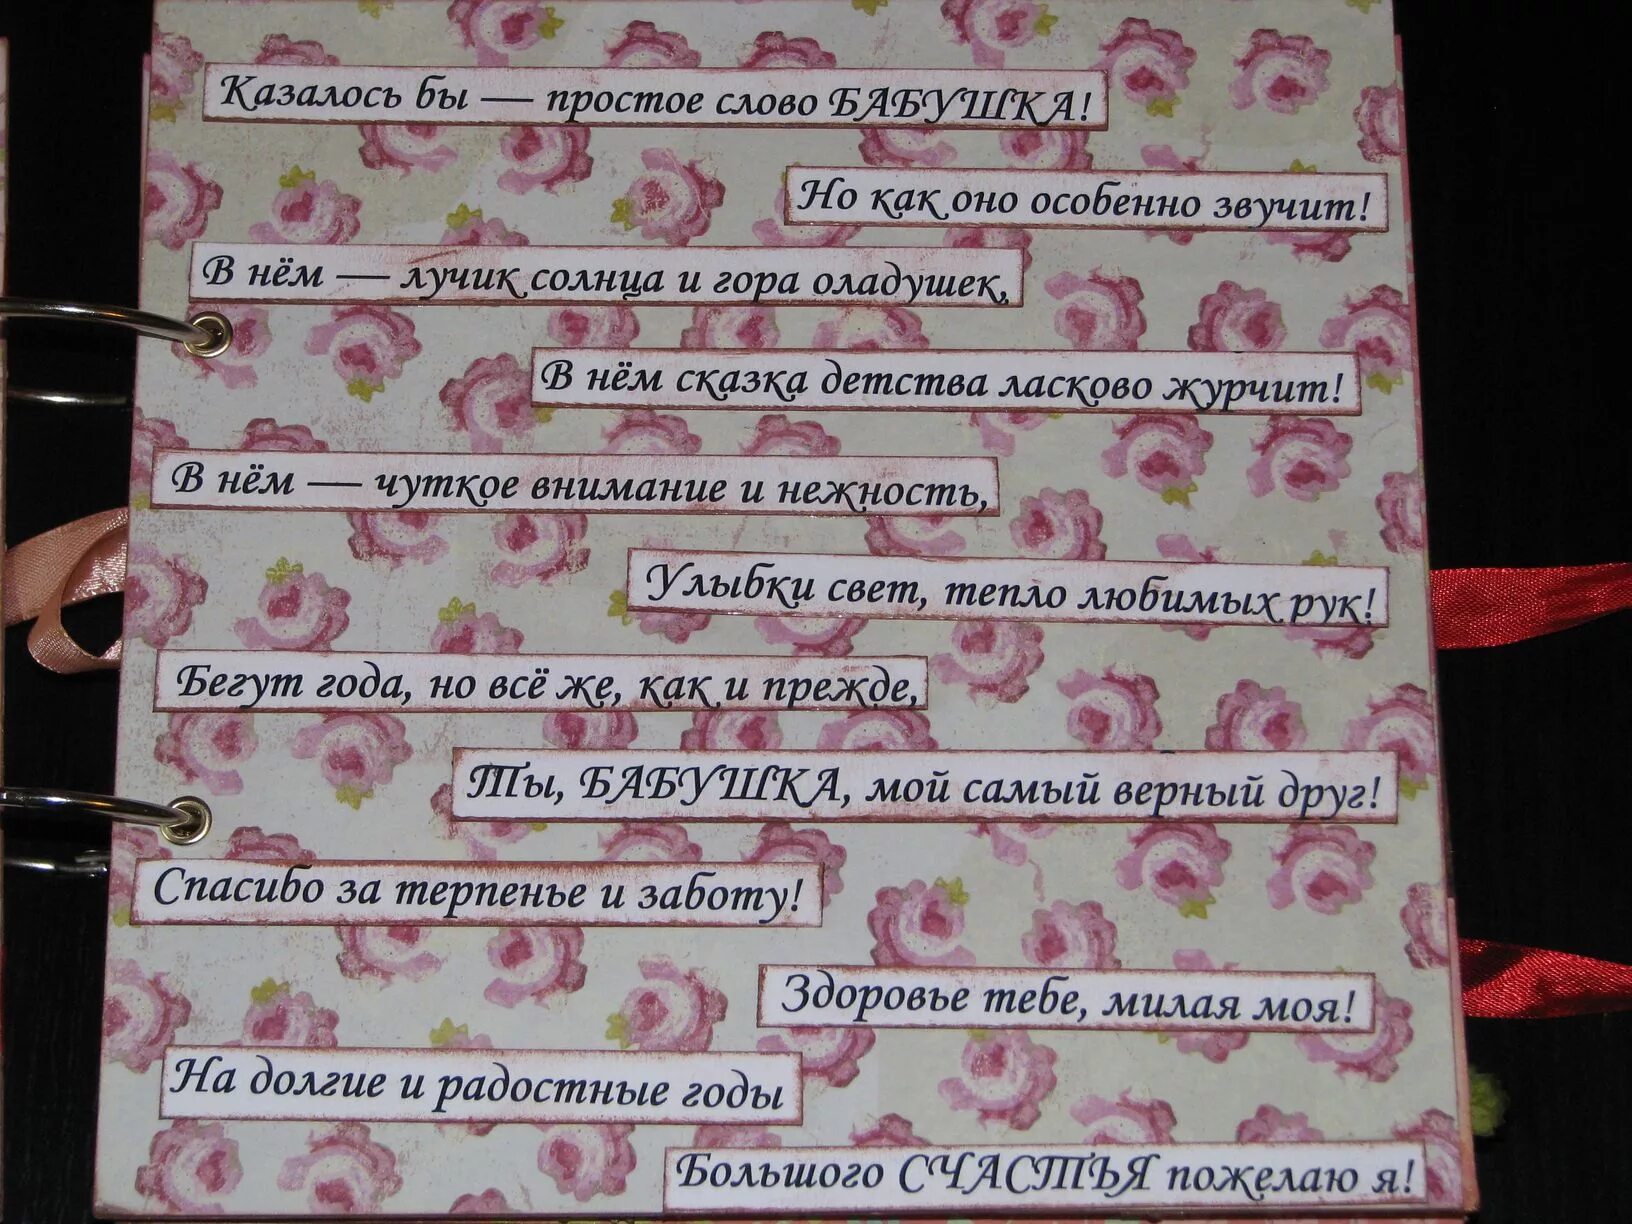 Казалось бы — простое слово БАБУШКА!
Но как оно особенно звучит!
В нём — лучик солнца и гора оладушек,
В нём сказка детства ласково журчит!
В нём — чуткое внимание и нежность,
Улыбки свет, тепло любимых рук!
Бегут года, но всё же, как и прежде,
Ты, БАБУШКА, мой самый верный друг!
Спасибо за терпенье и заботу!
Здоровье тебе, милая моя!
На долгие и радостные годы
Большого СЧАСТЬЯ пожелаю я!